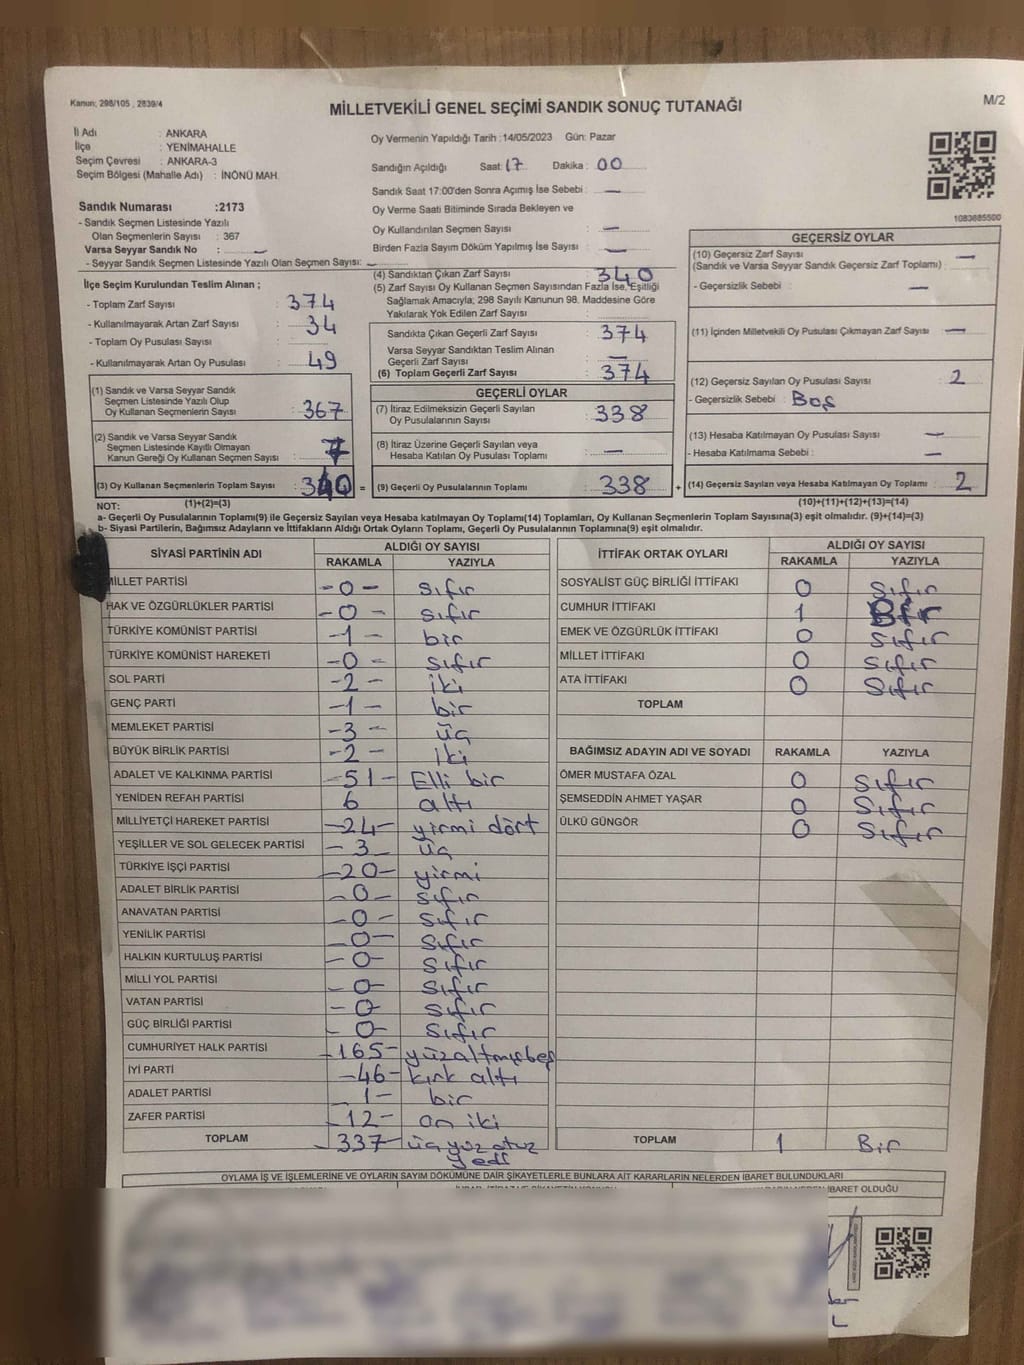 Kanun; 298/105 , 2839/4
MİLLETVEKİLİ GENEL SEÇİMİ SANDIK SONUÇ TUTANAĞI
M/2
İl Adı : ANKARA
İlçe : YENİMAHALLE
Seçim Çevresi : ANKARA-3
Seçim Bölgesi (Mahalle Adı) : İNÖNÜ MAH.
Sandık Numarası :2173
- Sandık Seçmen Listesinde Yazılı
Olan Seçmenlerin Sayısı : 367
Varsa Seyyar Sandık No : —
- Seyyar Sandık Seçmen Listesinde Yazılı Olan Seçmen Sayısı: —
Oy Vermenin Yapıldığı Tarih :14/05/2023 Gün: Pazar
Sandığın Açıldığı Saat: 17 Dakika : 00
Sandık Saat 17:00'den Sonra Açımış İse Sebebi : —
Oy Verme Saati Bitiminde Sırada Bekleyen ve
Oy Kullandırılan Seçmen Sayısı : —
Birden Fazla Sayım Döküm Yapılmış İse Sayısı : —
1083685500
İlçe Seçim Kurulundan Teslim Alınan ;
- Toplam Zarf Sayısı : 374
- Kullanılmayarak Artan Zarf Sayısı : 34
- Toplam Oy Pusulası Sayısı :
- Kullanılmayarak Artan Oy Pusulası : 49
(1) Sandık ve Varsa Seyyar Sandık
Seçmen Listesinde Yazılı Olup
Oy Kullanan Seçmenlerin Sayısı : 367
(2) Sandık ve Varsa Seyyar Sandık
Seçmen Listesinde Kayıtlı Olmayan
Kanun Gereği Oy Kullanan Seçmen Sayısı : 7
(3) Oy Kullanan Seçmenlerin Toplam Sayısı : 340 =
(1)+(2)=(3)
(4) Sandıktan Çıkan Zarf Sayısı : 340
(5) Zarf Sayısı Oy Kullanan Seçmen Sayısından Fazla İse, Eşitliği
Sağlamak Amacıyla; 298 Sayılı Kanunun 98. Maddesine Göre
Yakılarak Yok Edilen Zarf Sayısı :
Sandıkta Çıkan Geçerli Zarf Sayısı : 374
Varsa Seyyar Sandıktan Teslim Alınan
Geçerli Zarf Sayısı : —
(6) Toplam Geçerli Zarf Sayısı : 374
GEÇERLİ OYLAR
(7) İtiraz Edilmeksizin Geçerli Sayılan
Oy Pusulalarının Sayısı : 338
(8) İtiraz Üzerine Geçerli Sayılan veya
Hesaba Katılan Oy Pusulası Toplamı : —
(9) Geçerli Oy Pusulalarının Toplamı : 338 +
GEÇERSİZ OYLAR
(10) Geçersiz Zarf Sayısı : —
(Sandık ve Varsa Seyyar Sandık Geçersiz Zarf Toplamı)
- Geçersizlik Sebebi : —
(11) İçinden Milletvekili Oy Pusulası Çıkmayan Zarf Sayısı : —
(12) Geçersiz Sayılan Oy Pusulası Sayısı : 2
- Geçersizlik Sebebi : Boş
(13) Hesaba Katılmayan Oy Pusulası Sayısı : —
- Hesaba Katılmama Sebebi : —
(14) Geçersiz Sayılan veya Hesaba Katılmayan Oy Toplamı : 2
(10)+(11)+(12)+(13)=(14)
NOT:
a- Geçerli Oy Pusulalarının Toplamı(9) ile Geçersiz Sayılan veya Hesaba katılmayan Oy Toplamı(14) Toplamları, Oy Kullanan Seçmenlerin Toplam Sayısına(3) eşit olmalıdır. (9)+(14)=(3)
b- Siyasi Partilerin, Bağımsız Adayların ve İttifakların Aldığı Ortak Oyların Toplamı, Geçerli Oy Pusulalarının Toplamına(9) eşit olmalıdır.
SİYASİ PARTİNİN ADI ALDIĞI OY SAYISI
RAKAMLA YAZIYLA
MİLLET PARTİSİ -0- sıfır
HAK VE ÖZGÜRLÜKLER PARTİSİ -0- sıfır
TÜRKİYE KOMÜNİST PARTİSİ -1- bir
TÜRKİYE KOMÜNİST HAREKETİ -0- sıfır
SOL PARTİ -2- iki
GENÇ PARTİ -1- bir
MEMLEKET PARTİSİ -3- üç
BÜYÜK BİRLİK PARTİSİ -2- iki
ADALET VE KALKINMA PARTİSİ -51- Elli bir
YENİDEN REFAH PARTİSİ 6 altı
MİLLİYETÇİ HAREKET PARTİSİ -24- yirmi dört
YEŞİLLER VE SOL GELECEK PARTİSİ -3- üç
TÜRKİYE İŞÇİ PARTİSİ -20- yirmi
ADALET BİRLİK PARTİSİ -0- sıfır
ANAVATAN PARTİSİ -0- sıfır
YENİLİK PARTİSİ -0- sıfır
HALKIN KURTULUŞ PARTİSİ -0- sıfır
MİLLİ YOL PARTİSİ -0- sıfır
VATAN PARTİSİ -0- sıfır
GÜÇ BİRLİĞİ PARTİSİ -0- sıfır
CUMHURİYET HALK PARTİSİ -165- yüzaltmışbeş
İYİ PARTİ -46- kırk altı
ADALET PARTİSİ -1- bir
ZAFER PARTİSİ -12- on iki
TOPLAM -337- üçyüz otuz yedi
İTTİFAK ORTAK OYLARI ALDIĞI OY SAYISI
RAKAMLA YAZIYLA
SOSYALİST GÜÇ BİRLİĞİ İTTİFAKI 0 Sıfır
CUMHUR İTTİFAKI 1 Bir
EMEK VE ÖZGÜRLÜK İTTİFAKI 0 Sıfır
MİLLET İTTİFAKI 0 Sıfır
ATA İTTİFAKI 0 Sıfır
TOPLAM
BAĞIMSIZ ADAYIN ADI VE SOYADI RAKAMLA YAZIYLA
ÖMER MUSTAFA ÖZAL 0 Sıfır
ŞEMSEDDİN AHMET YAŞAR 0 Sıfır
ÜLKÜ GÜNGÖR 0 Sıfır
TOPLAM 1 Bir
OYLAMA İŞ VE İŞLEMLERİNE VE OYLARIN SAYIM DÖKÜMÜNE DAİR ŞİKAYETLERLE BUNLARA AİT KARARLARIN NELERDEN İBARET BULUNDUKLARI
İBARET OLDUĞU